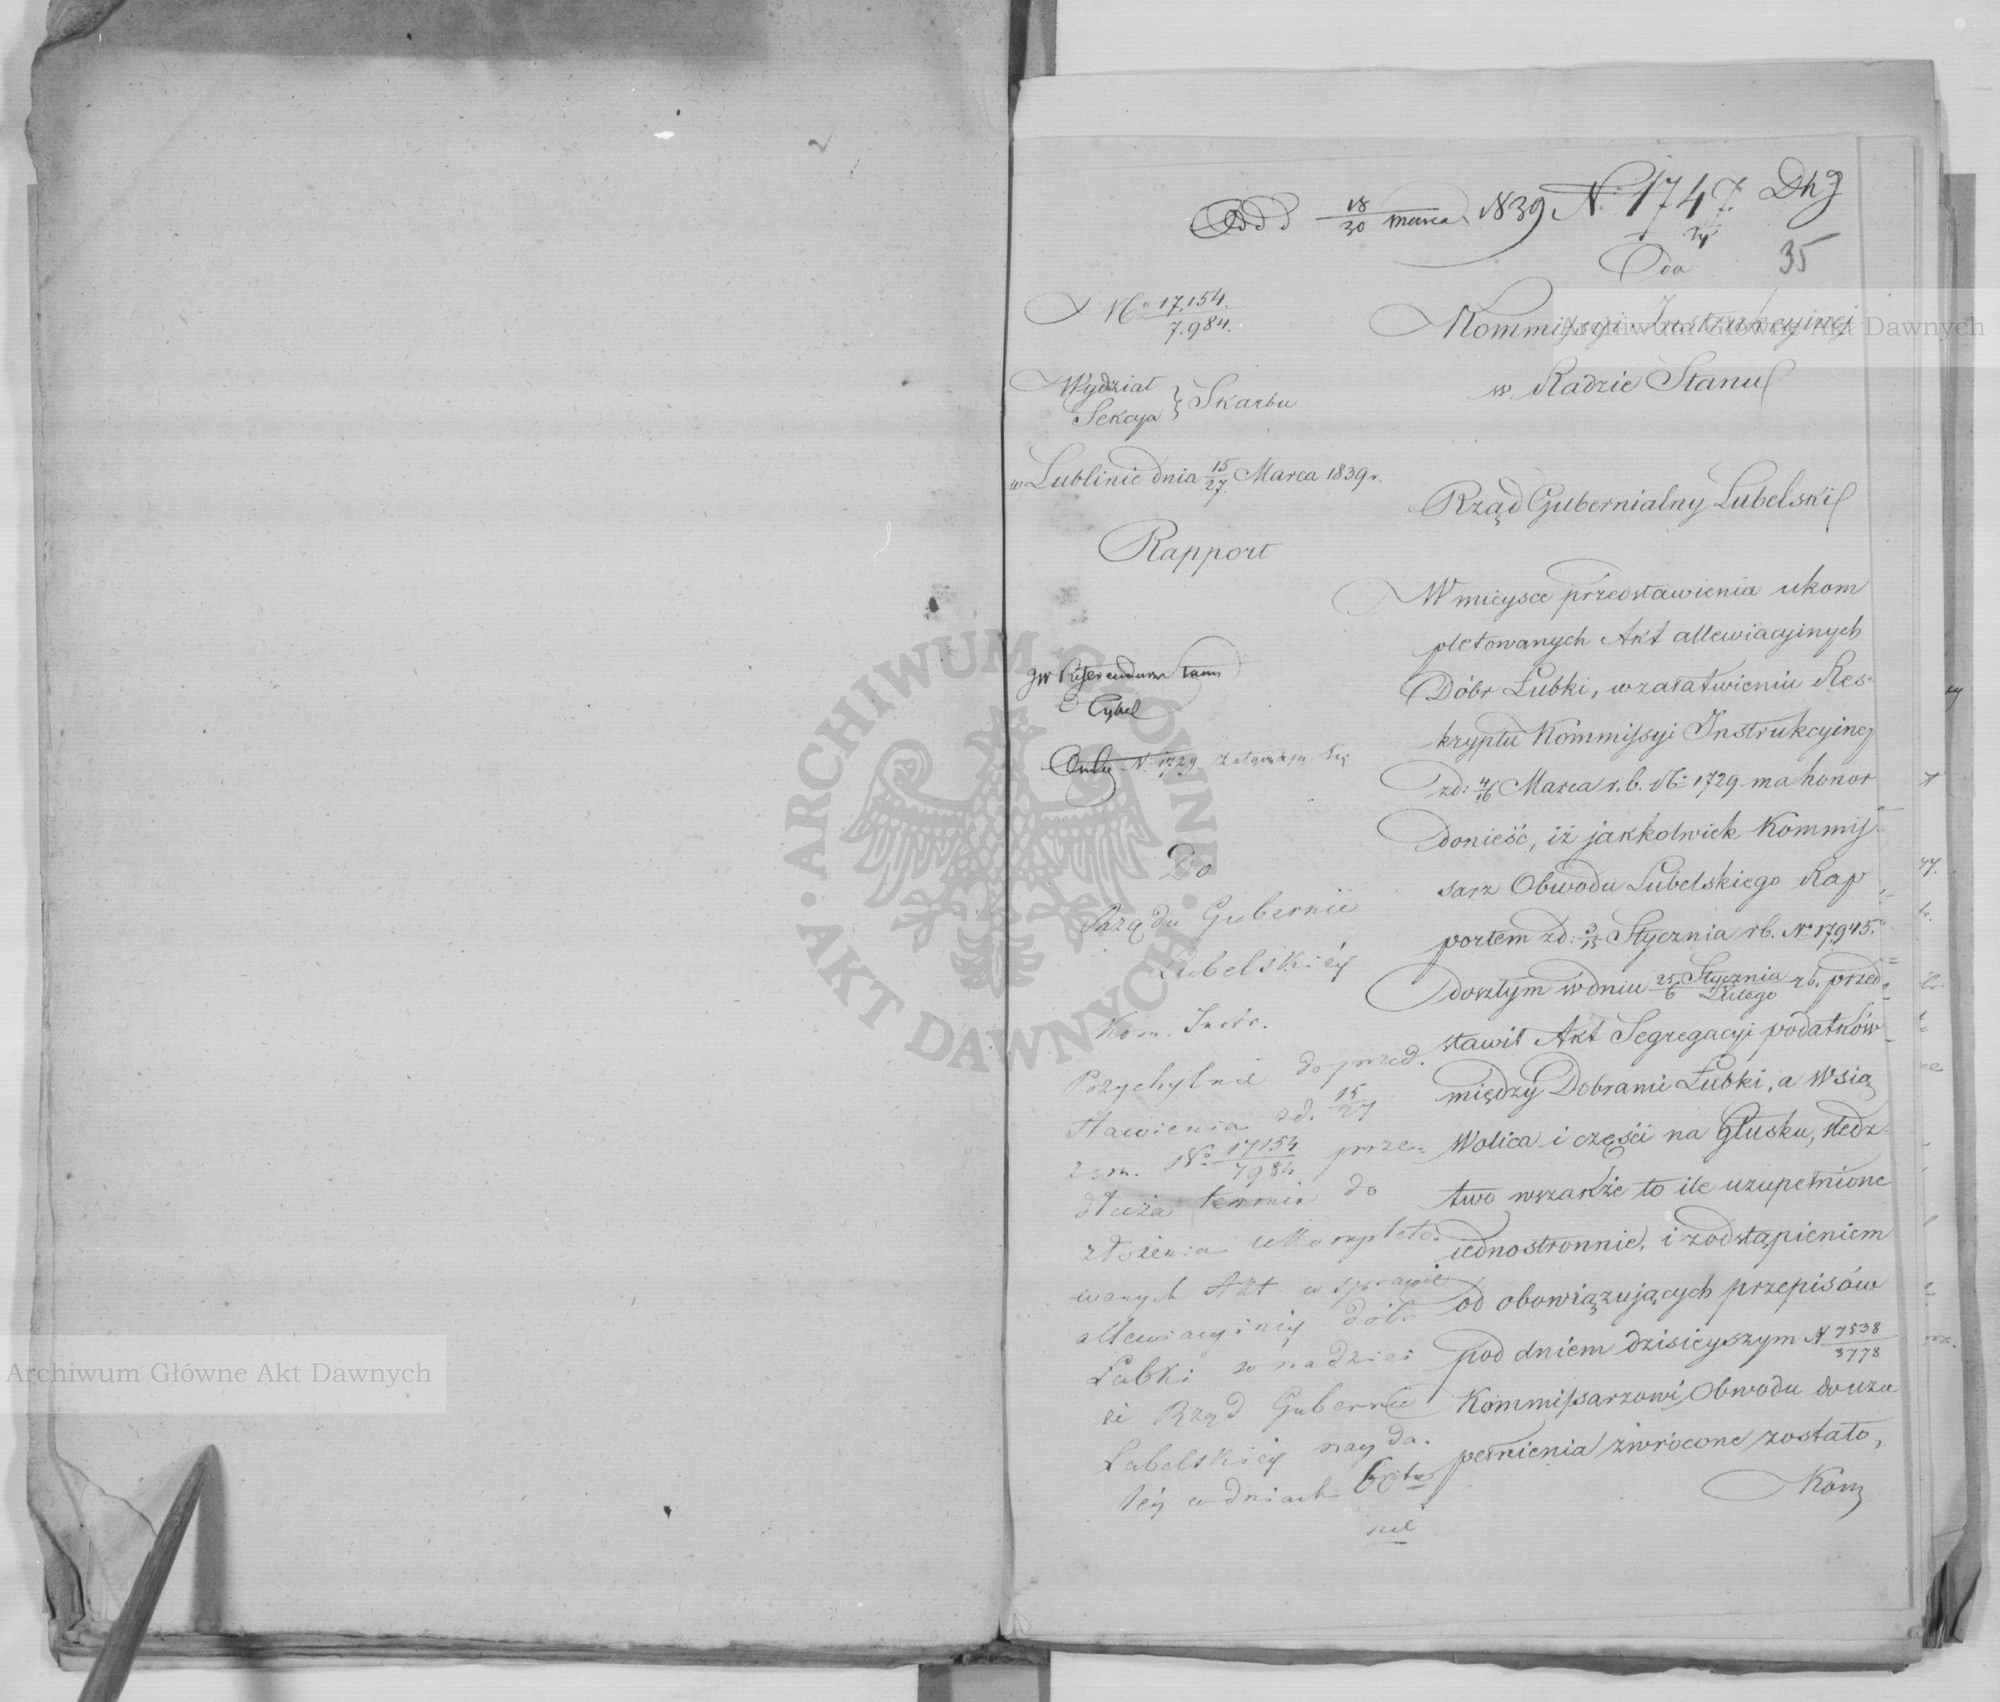 Odd d 18/30 marca 1839 N. 1747.
35
Do
Kommissyi Instrukcyinéj
w Radzie Stanu
No 17,154/7,984.
Wydział
Sekcya } Skarbu
w Lublinie dnia 15/27 Marca 1839 r.
Rapport
Rząd Gubernialny Lubelski
W mieysce przedstawienia ukom
pletowanych Akt allewiacyinych
Dóbr Łubki, w załatwieniu Res-
kryptu Kommissyi Instrukcyiney
z d: 4/16 Marca r. b. No 1729 ma honor
donieść, iż jakkolwiek Kommis
sarz Obwodu Lubelskiego Rap
portem z d: 3/15 Stycznia r b. No 17,945.
doszłym w dniu 25 Stycznia/6 Lutego r b. przed
stawił Akt Segregacyi podatków
między Dobrami Łubki, a Wsią
Wolica i części na Głusku, śledz
two wszakże to ile uzupełnione
iednostronnie, i z odstąpieniem
od obowiązujących przepisów
pod dniem dzisieyszym N 7538/3778
Kommissarzowi Obwodu do uzu
pełnienia zwrócone zostało,
Kom
JW Referendarz Stanu
Cybel
N. 1729 załączają się
Do
Rządu Gubernii
Lubelskiéy
Kom. Instr.
Przychylnie do przed.
stawienia z d. 15/27
z. m. No 17154/7984 prze-
dłuża termin do
złożenia ukompleto-
wanych Akt w sprawie
allewiacyinéy dóbr
Łubki w nadziei
iż Rząd Gubernii
Lubelskiéy nayda-
léy w dniach
Archiwum Główne Akt Dawnych
Archiwum Główne Akt Dawnych
ARCHIWUM GŁÓWNE · AKT DAWNYCH ·